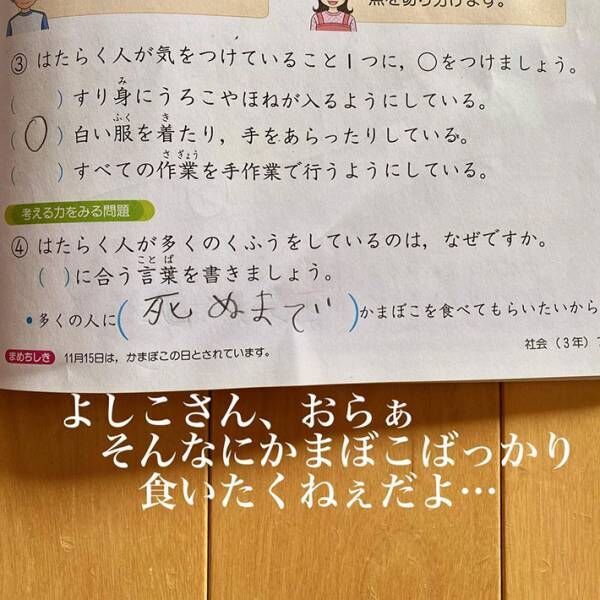 ③はたらく人が気をつけていること1つに，○をつけましょう。
(　)すり身にうろこやほねが入るようにしている。
(○)白い服を着たり，手をあらったりしている。
(　)すべての作業を手作業で行うようにしている。
考える力をみる問題
④はたらく人が多くのくふうをしているのは，なぜですか。
(　)に合う言葉を書きましょう。
•多くの人に(死ぬまで)かまぼこを食べてもらいたいから
社会（3年）
まめちしき 11月15日は，かまぼこの日とされています。
よしこさん、おらぁ
そんなにかまぼこばっかり
食いたくねぇだよ…